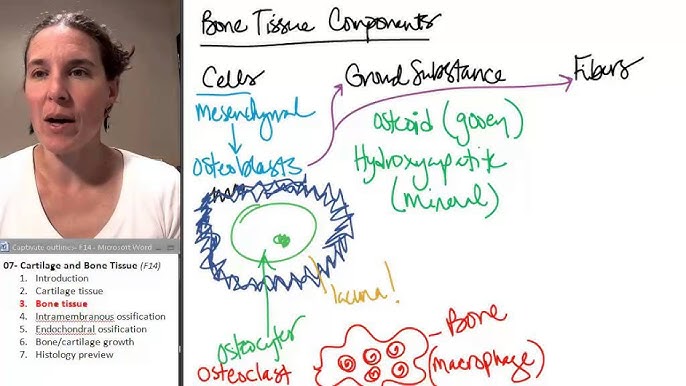 Bone Tissue Components
Cells
Ground Substance
Fibers
Mesenchymal
Osteoblasts
Osteoid (gooey)
Hydroxyapatite
(mineral)
lacuna!
Osteocyte
Osteoclast
Bone
(macrophage)
Captivate outlines- F14 - Microsoft Word
07- Cartilage and Bone Tissue (F14)
1. Introduction
2. Cartilage tissue
3. Bone tissue
4. Intramembranous ossification
5. Endochondral ossification
6. Bone/cartilage growth
7. Histology preview